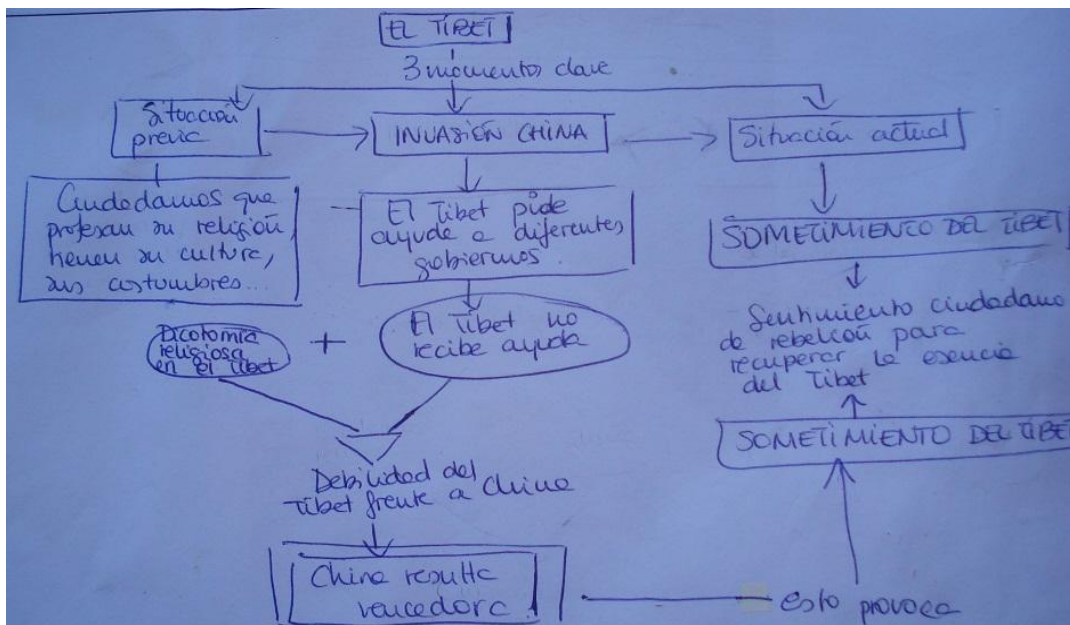 EL TÍBET
3 momentos clave
Situación
previa
INVASIÓN CHINA
Situación actual
Ciudadanos que
profesan su religión,
tienen su cultura,
sus costumbres...
El Tíbet pide
ayuda a diferentes
gobiernos.
SOMETIMIENTO DEL TIBET
Dicotomía
religiosa
en el Tibet
+
El Tibet no
recibe ayuda
Sentimiento ciudadano
de rebelión para
recuperar la esencia
del Tibet
SOMETIMIENTO DEL TIBET
Debilidad del
Tibet frente a China
China resulta
vencedora.
esto provoca